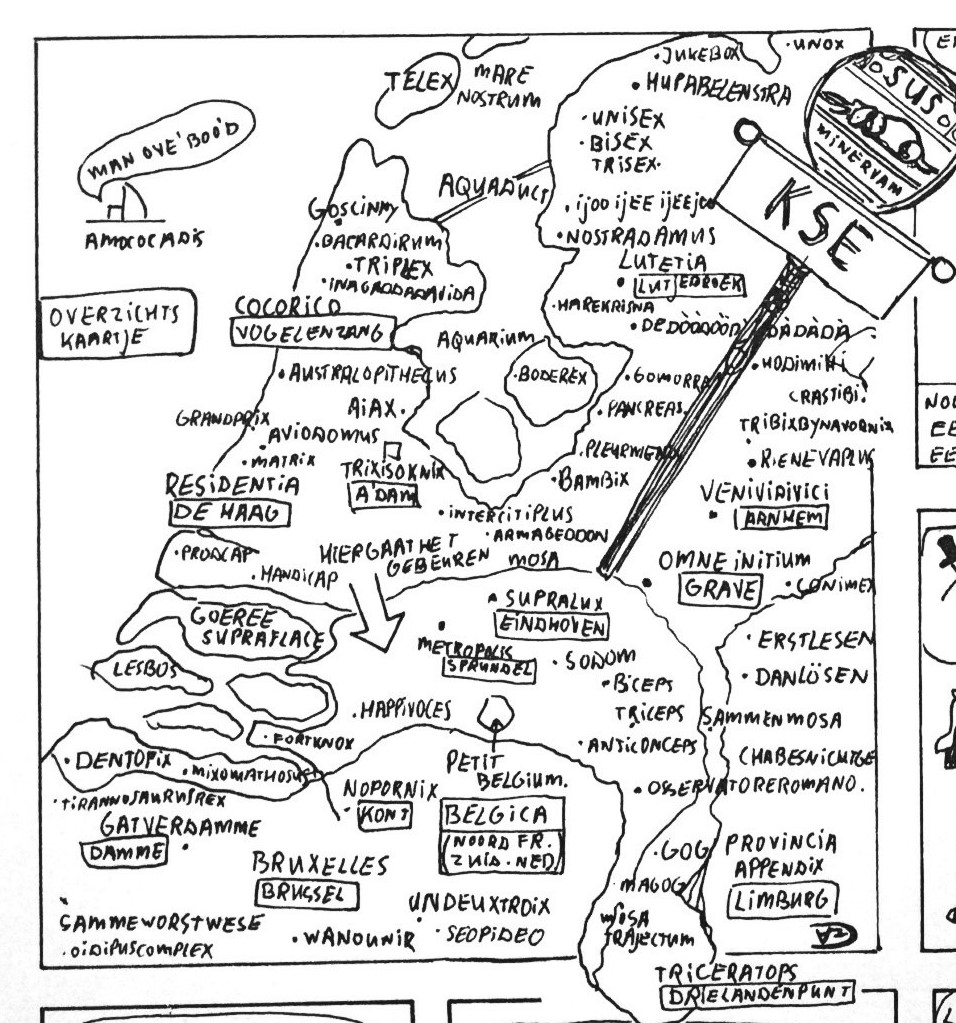 UNOX
JUKEBOX
HUPABELENSTRA
TELEX
MARE
NOSTRUM
SUS
MINERVAM
MAN OVE'BOO'D
UNISEX
BISEX
TRISEX
KSE
AQUADUCT
GOSCINNY
AMOCOCADIS
BACARDIRUM
NOSTRADAMUS
TRIPLEX
LUTETIA
LUTJEBROEK
INAGADDADAVIDA
COCORICO
VOGELENZANG
HAREKRISNA
OVERZICHTS
KAARTJE
AQUARIUM
AUSTRALOPITHECUS
BODEREX
GOMORRA
HODIMIHI
CRASTIBI
AIAX
PANCREAS
GRANDPRIX
TRIBIXBYNAVORNIX
AVIODOMUS
MATRIX
PLEURMENIX
RIENEVAPLUS
TRIXISOKNIX
A'DAM
BAMBIX
RESIDENTIA
DE HAAG
VENIVIDIVICI
ARNHEM
INTERCITIPLUS
ARMAGEDDON
PRODCAP
HANDICAP
HIERGAATHET
GEBEUREN
MOSA
OMNE INITIUM
GRAVE
CONIMEX
SUPRALUX
EINDHOVEN
GOEREE
SUPRAFLACE
METROPOLIS
SPRUNDEL
SODOM
ERSTLESEN
LESBOS
BICEPS
DANLÖSEN
HAPPIVOCES
TRICEPS
SAMMENMOSA
FORTKNOX
ANTICONCEPS
CHABESNICHTGE
DENTOPIX
MIXOMATHOSUS
PETIT
BELGIUM.
OSSERVATOREROMANO.
TIRANNOSAURUSREX
NOPORNIX
KONT
BELGICA
(NOORD FR.
ZUID-NED)
GATVERDAMME
DAMME
GOG
MAGOG
PROVINCIA
APPENDIX
LIMBURG
BRUXELLES
BRUSSEL
UNDEUXTROIX
SAMMEWORSTWESE
WANOUNIR
SEOPIDEO
MOSA
TRAJECTUM
OIDIPUSCOMPLEX
TRICERATOPS
DRIELANDENPUNT